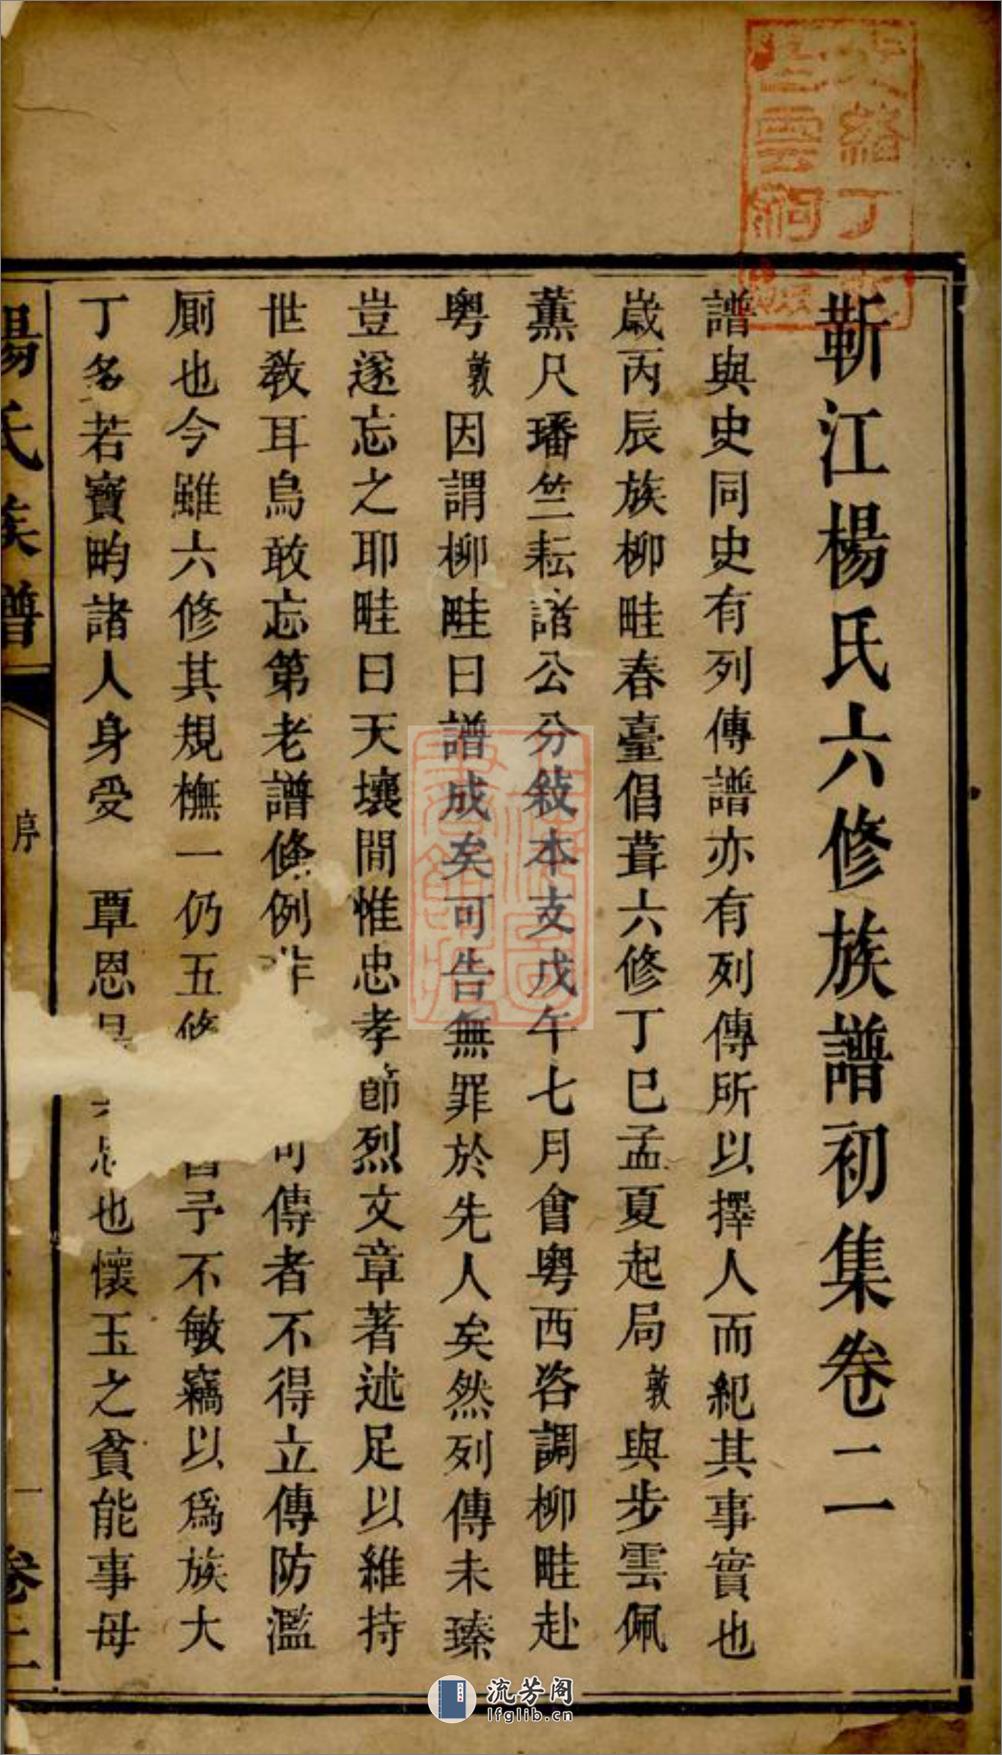 靳江楊氏六修族譜初集卷二
譜與史同史有列傳譜亦有列傳所以擇人而紀其事實也
歲丙辰族柳畦春臺倡葺六修丁巳孟夏起局敦與步雲佩
薰尺璠竺耘諸公分敍本支戊午七月會粵西咨調柳畦赴
粵敦因謂柳畦曰譜成矣可告無罪於先人矣然列傳未臻
豈遂忘之耶畦曰天壤間惟忠孝節烈文章著述足以維持
世敎耳烏敢忘第老譜條例非可傳者不得立傳防濫
厠也今雖六修其規橅一仍五修予不敏竊以爲族大
丁多若寶畇諸人身受 覃恩也懷玉之貧能事母
楊氏族譜
序
一
卷二
流芳阁
lfglib.cn